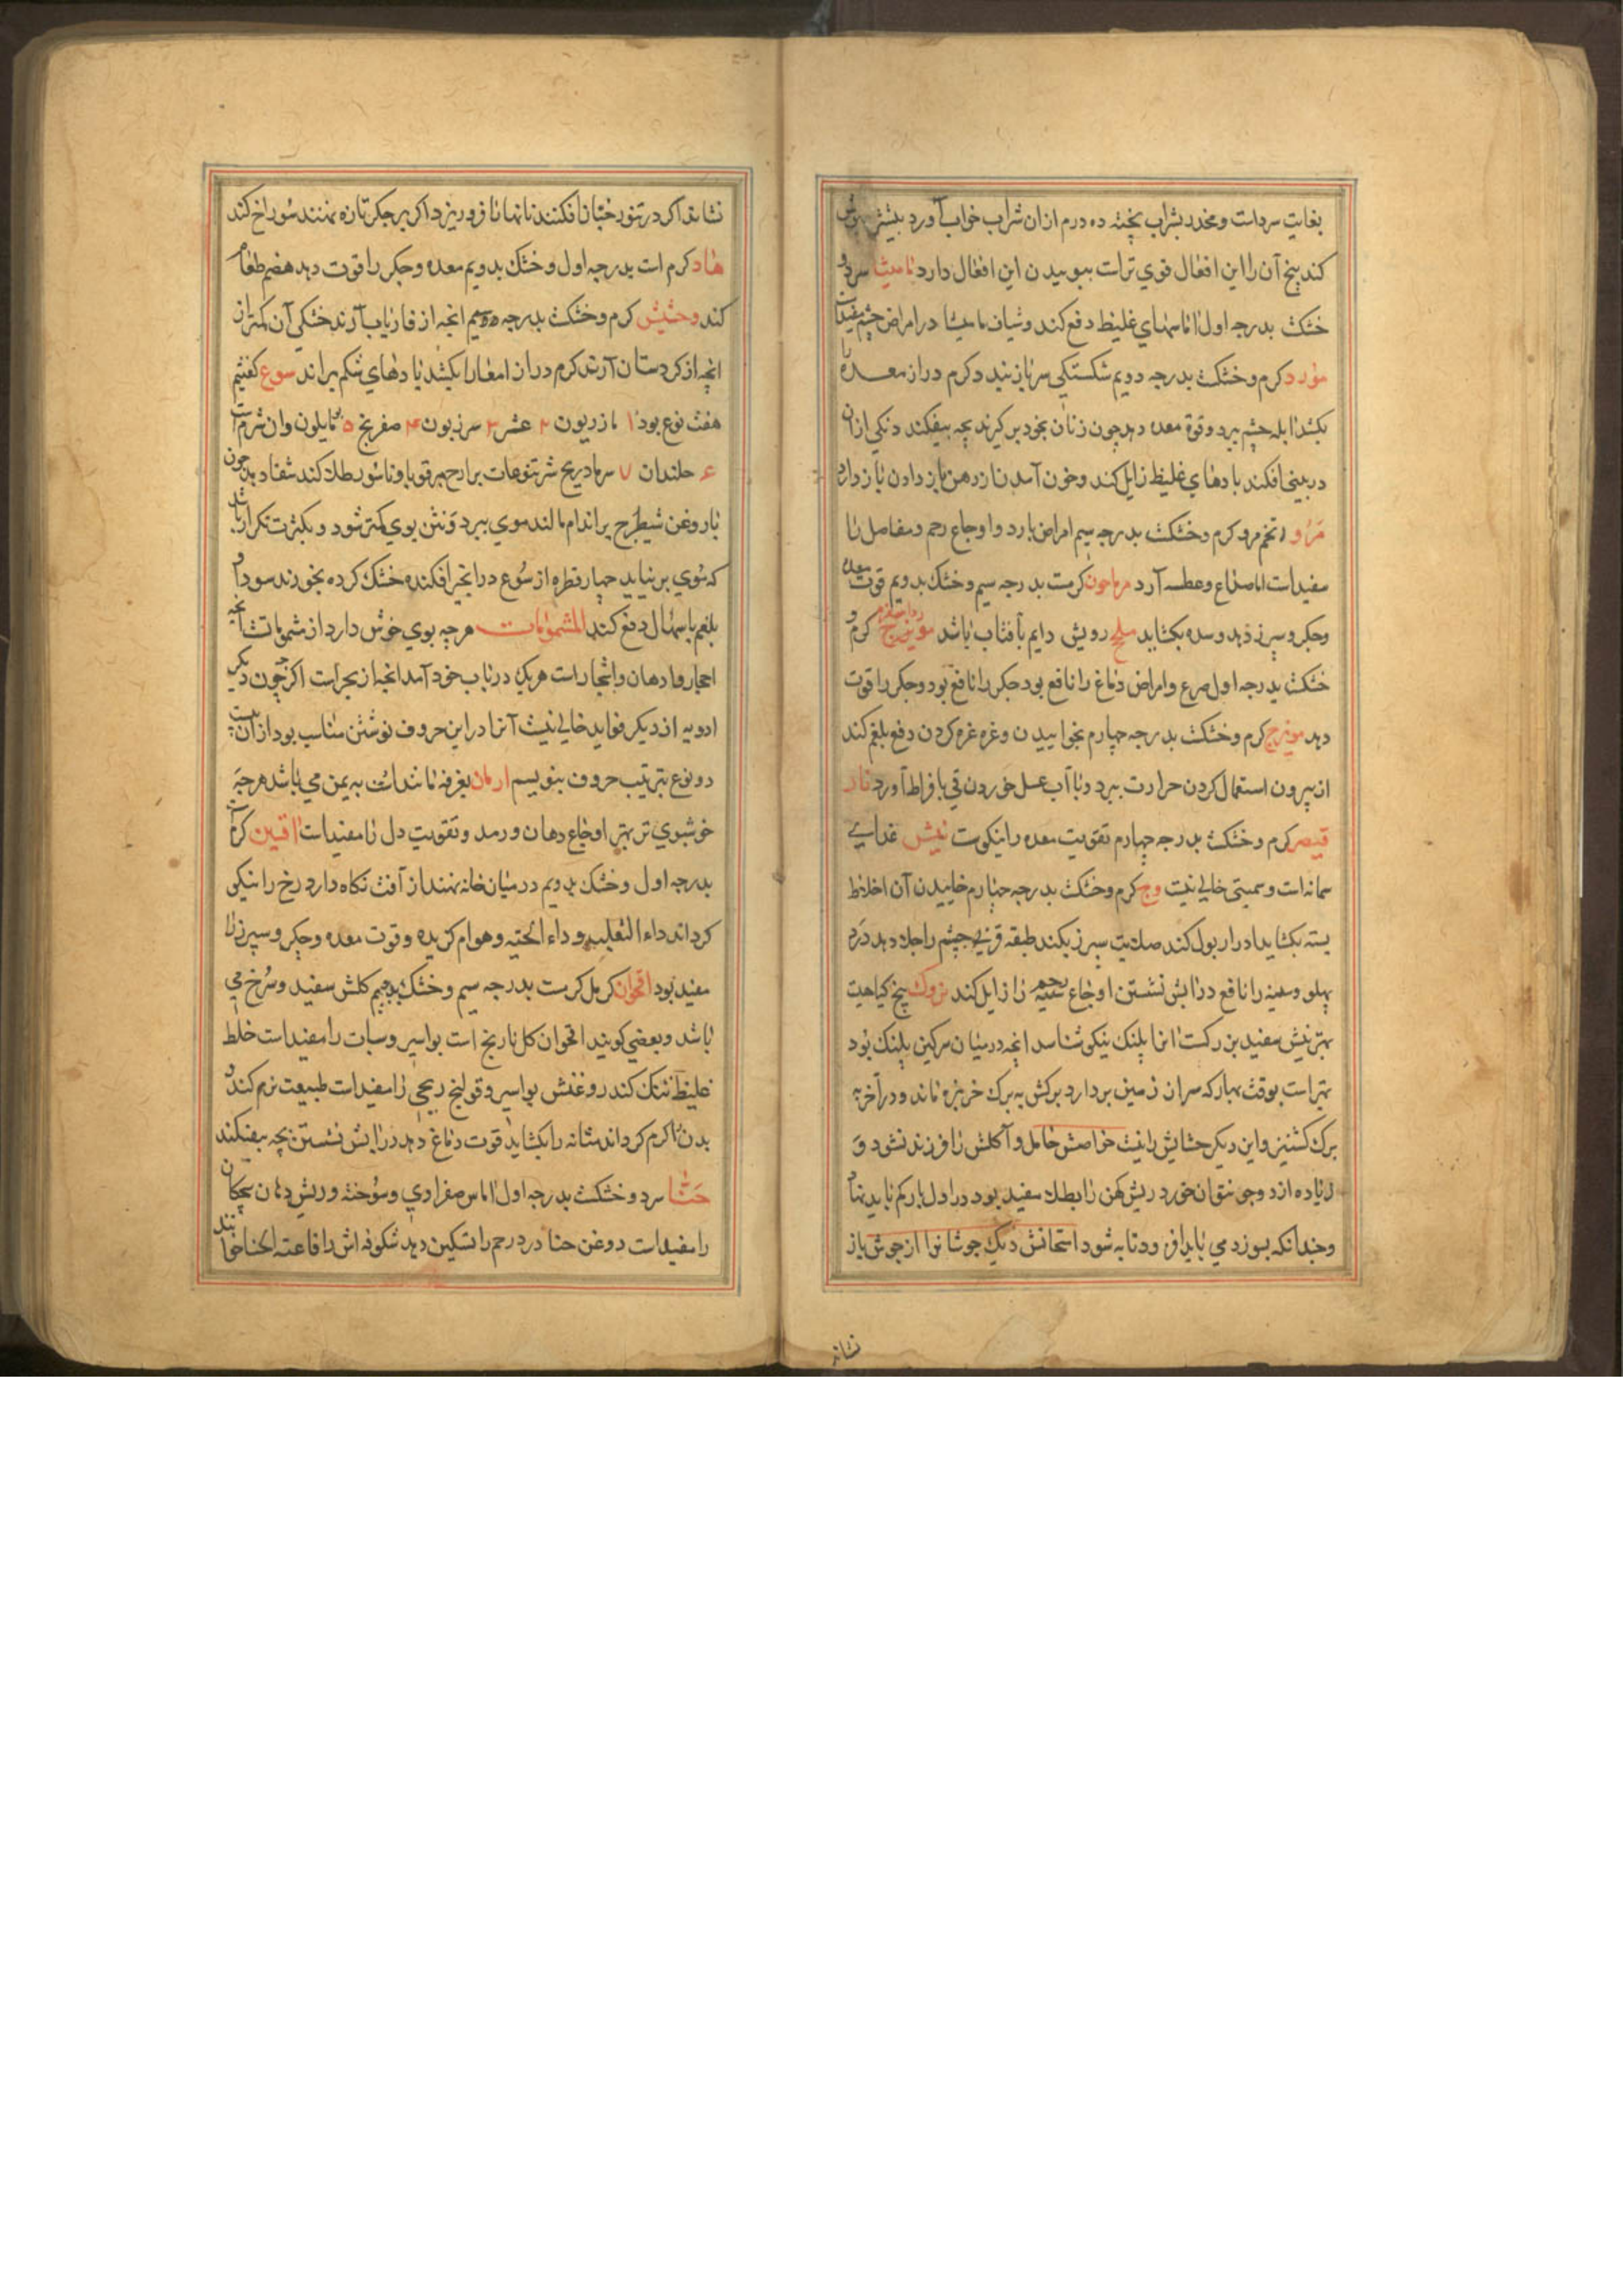 بغایت سردات و مخدر بشراب پخته ده درم از ان شراب خواب آورد بیشتر بیهوش
کند بیخ آن را این افعال قوی تراست ببوییدن این افعال دارد مامیثا سرد و
خشک بدرجه اول اماسهای غلیظ دفع کند و شیاف مامیثا در امراض چشم مفیدات
مورد کرم و خشک بدرجه دویم شکستکی سر باز بندد و کرم دراز معده را
بکشد ابله چشم ببرد و قوة معده دهد چون زنان بخود بر کیرند بچه بیفکند دنکی ازان
در بینی افکند بادهای غلیظ زایل کند و خون آمدن از دهن باز دادن باز دارد
مرو و تخم مرو کرم و خشک بدرجه سیم امراض بارد و اوجاع رحم و مفاصل را
مفیدات اما صداع و عطسه آرد مرماحون کرمست بدرجه سیم و خشک بدویم قوت معده
و جکر و سپرز دهد و سده بکشاید ملح رویش دایم بآفتاب باشد کرم و
خشک بدرجه اول صرع و امراض دماغ را نافع بود جکر را نافع بود و جکر را قوت
دهد مویزج کرم و خشک بدرجه چهارم بخواییدن و غرغره کردن دفع بلغم کند
از بیرون استعمال کردن حرارت ببرد و با آب عسل خوردن قی بافراط آورد نار
قیصر کرم و خشک بدرجه چهارم تقویت معده را نیکوست نیش غدای
سمانه است و سمیتی خالی نیت وج کرم و خشک بدرجه چهارم خاییدن آن اخلاط
بسته بکشاید ادرار بول کند صلابت سپرز بکند طبقه قرنی چشم را جلا دهد درد
پهلو و سینه را نافع درابش نشستن اوجاع رحم را زایل کند بیخ کیاهیت
بهترینش سفید بزرکست انرا پلنک نیکو شناسد انچه در میان سرکین پلنک بود
بهتر است بوقت بهار که سر ان زمین بردارد برکش به برک خربزه ماند و در آخر به
برک کشنیز و این دیکر حشایش را نیت خواصش حامل و آکلش را فرزند نشود و
زیاده از دو جو نتوان خورد ریش کهن را بطلا سفید بود در اول بار کم باید نهاد
و چندانکه بسوزد می باید افزود تا به شود امتحانش دیک جوشانرا از جوش باز
نشاند
نشاند اکر در تنور خبازان افکنند نانها را فرو ریزد اکر بر جکر تازه نهند سوراخ کند
هاد کرم است بدرجه اول و خشک بدویم معده و جکر را قوت دهد هضم طعام
کند وخشیش کرم و خشک بدرجه سیم انچه از فاریاب آرند خشکی آن کمتر از
انچه از کردستان آرند کرم دراز امعا را بکشد بادهای شکم براند سوع کفتیم
هفت نوع بود ۱ مازریون ۲ عشر ۳ سرزیون ۴ صفریج ۵ مایلون وان شرم است
۶ حلندان ۷ شرتنوعات برادح بر قوبا و ناسور طلا کند شفا دهد چون
با روغن شیطرج بر اندام مالند موی ببرد و نتن بوی کمتر شود و بکثرت تکرار باشد
که موی بر نیاید چهار قطره از سوع در انجیر افکنده خشک کرده بخورند سودا و
بلغم باسهال دفع کند المشمومات هرچه بوی خوش دارد از مشمومات انچه
احجار و ادهان و اشجار است هریک در باب خود آمد انچه از بحراست اکرچه چون دیکر
ادویه از دیکر فواید خالی نیت آنرا در این حروف نوشتن مناسب بود از ان بیست
دو نوع بترتیب حروف بنویسم ارمان بغرفه مانند است به یمن می باشد هرچه
خوشبوی تر بهتر اوجاع دهان و رمد و تقویت دل را مفیدات افسین کرم است
بدرجه اول و خشک بدویم در میان خانه نهند از آفت نکاه دارد رخ را نیکو
کرداند داء الثعلب و داء الحیه و هوام کزیده و قوت معده و جکر و سپرز را
مفید بود اقحوان کرمل کرمست بدرجه سیم و خشک بدویم کلش سفید و سرخ می
باشد و بعضی کویند اقحوان کل نارنج است بواسیر و سبات را مفیدات خلط
غلیظ تنک کند روغنش بواسیر و قولنج ریحی را مفیدات طبیعت نرم کند و
بدن را کرم کرداند مثانه را بکشاید قوت دماغ دهد درابش نشستن بچه بیفکند
حنا سرد و خشک بدرجه اول اماس صفراوی و سوخته و ریش دهان بچکان
را مفیدات روغن حنا درد رحم را تسکین دهد شکوفه اش را فاغیة الحنا خوانند